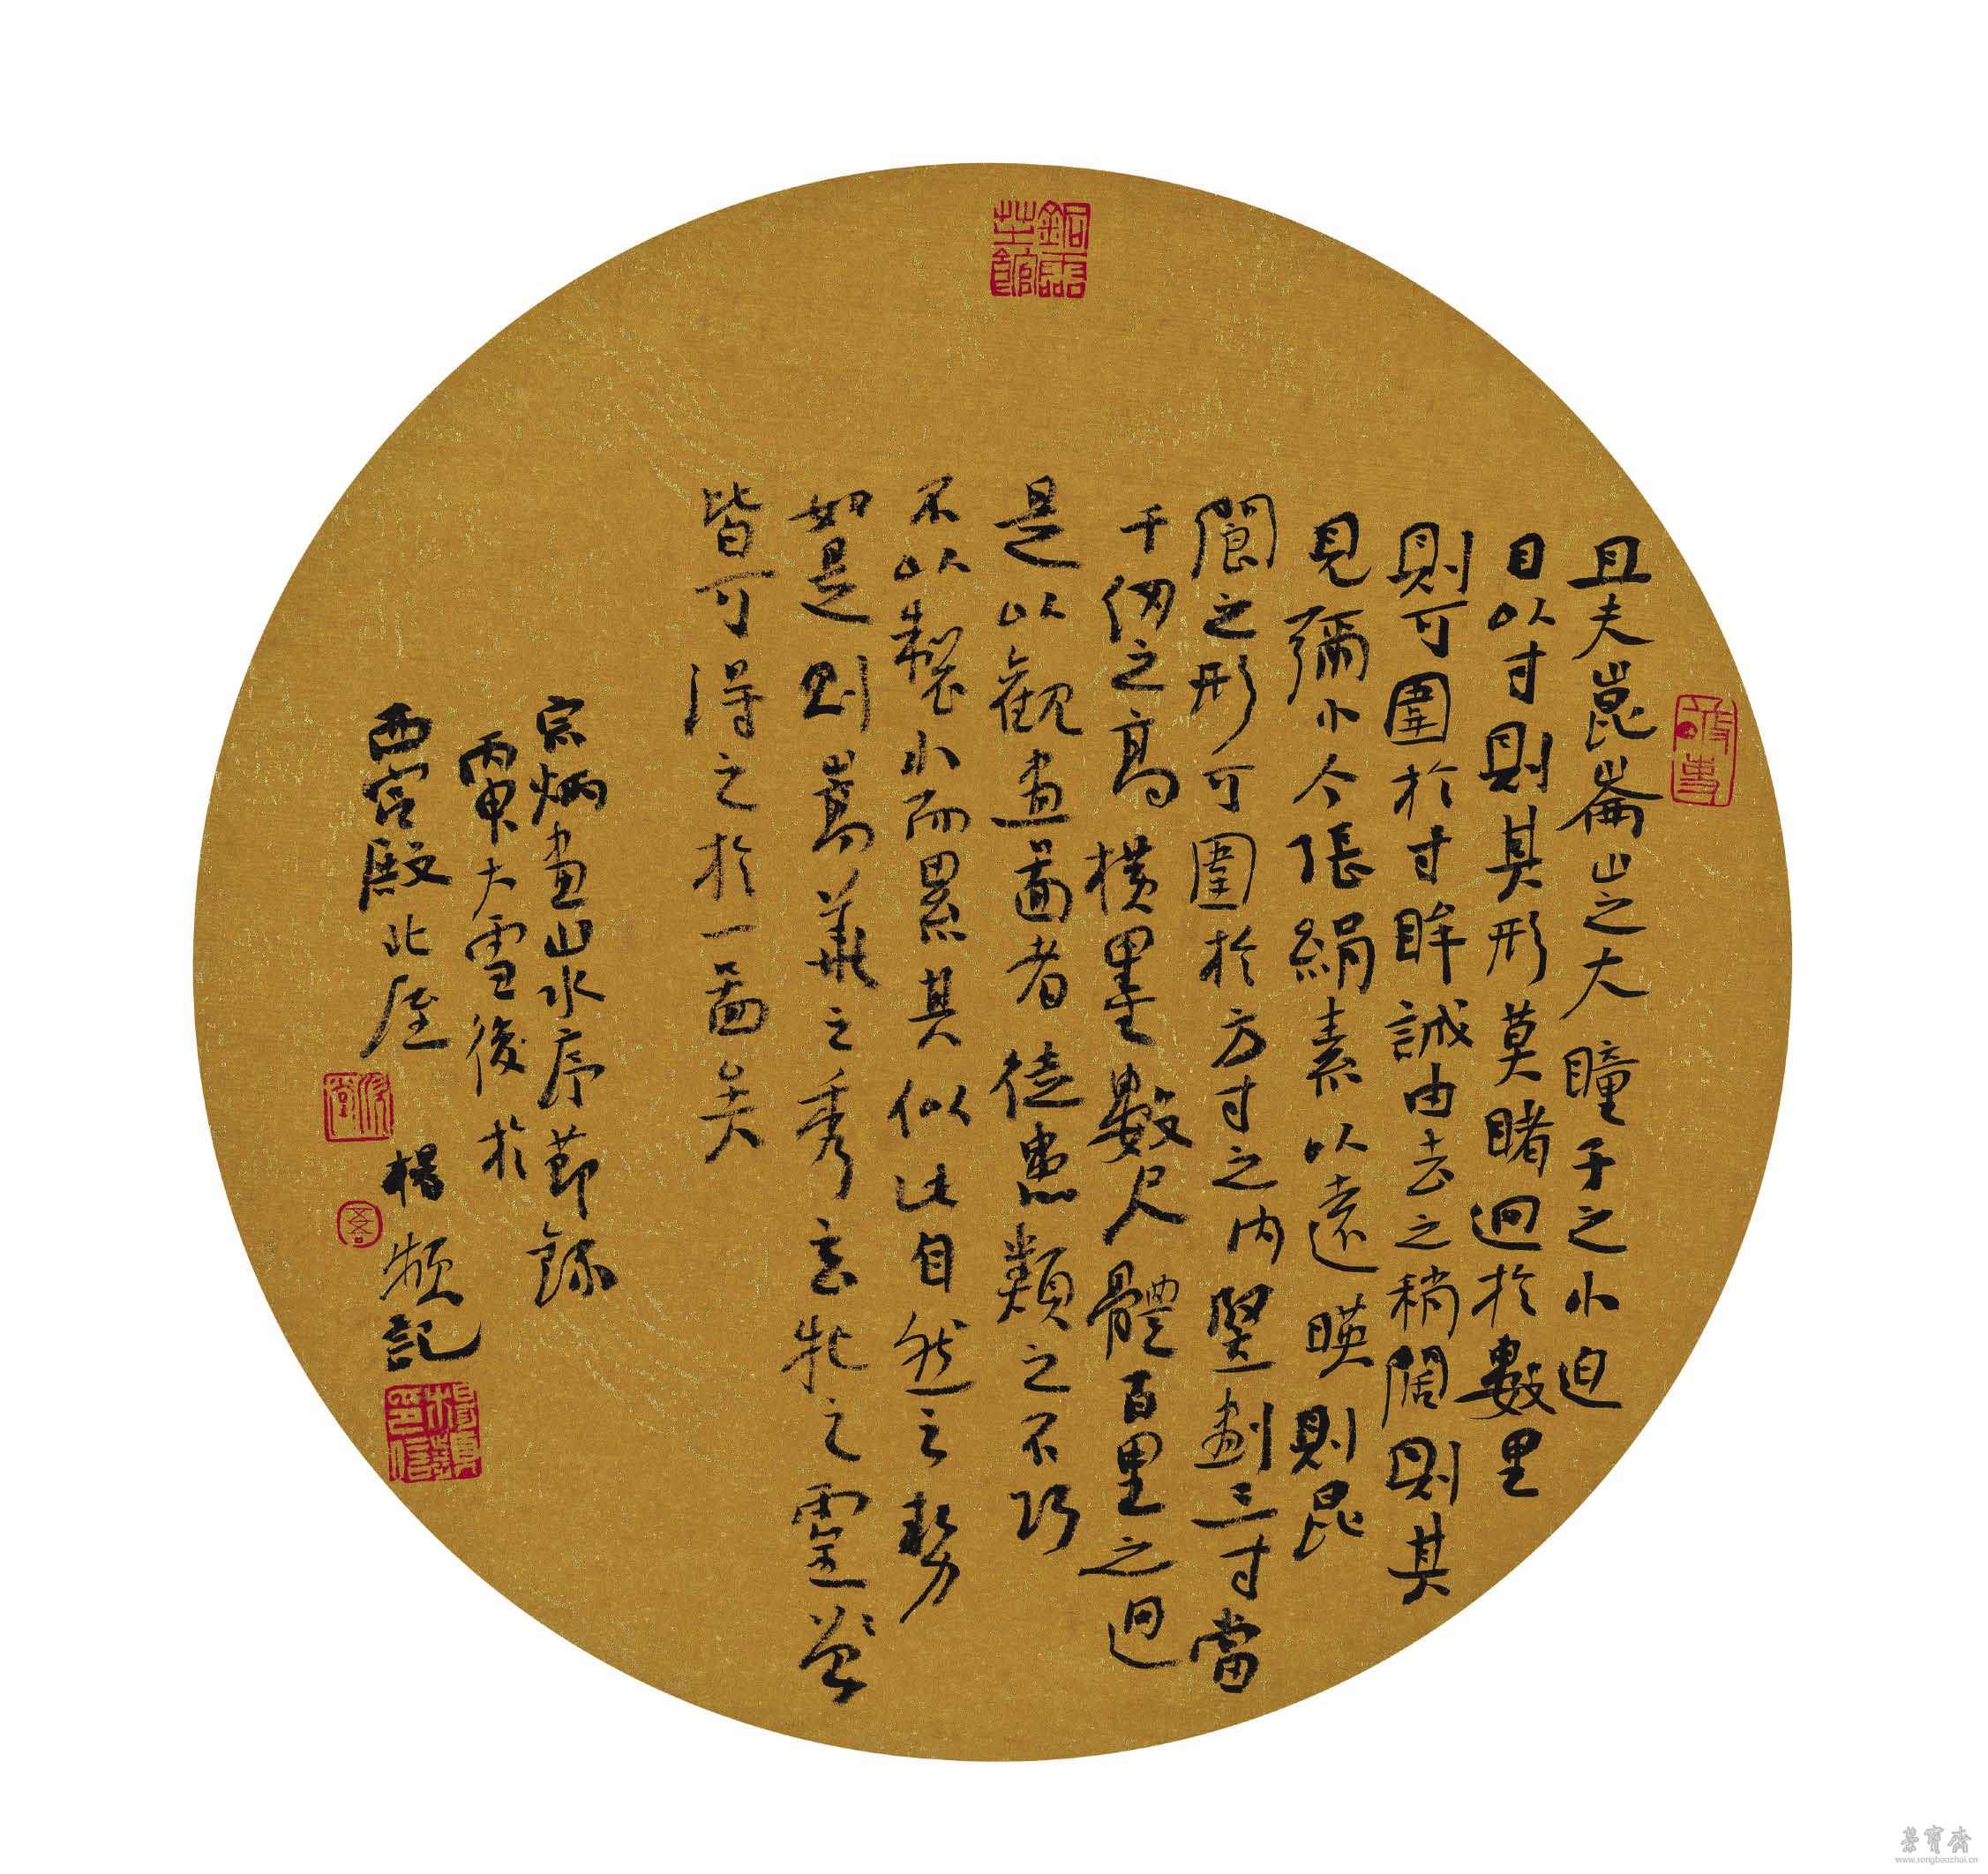 且夫崑崙山之大瞳子之小迫
目以寸則其形莫睹迥於數里
則可圍於寸眸誠由去之稍闊則其
見彌小今張絹素以遠暎則昆
閬之形可圍於方寸之內竪劃三寸當
千仞之高橫墨數尺體百里之迥
是以觀畫圖者徒患類之不巧
不以製小而累其似此自然之勢
如是則嵩華之秀玄牝之靈
皆可得之於一圖矣
宗炳畫山水序節錄
丙申大雪後於
西宮殿北 楊頻記
楊頻
印信
榮寶齋
www.rongbaozhai.cn